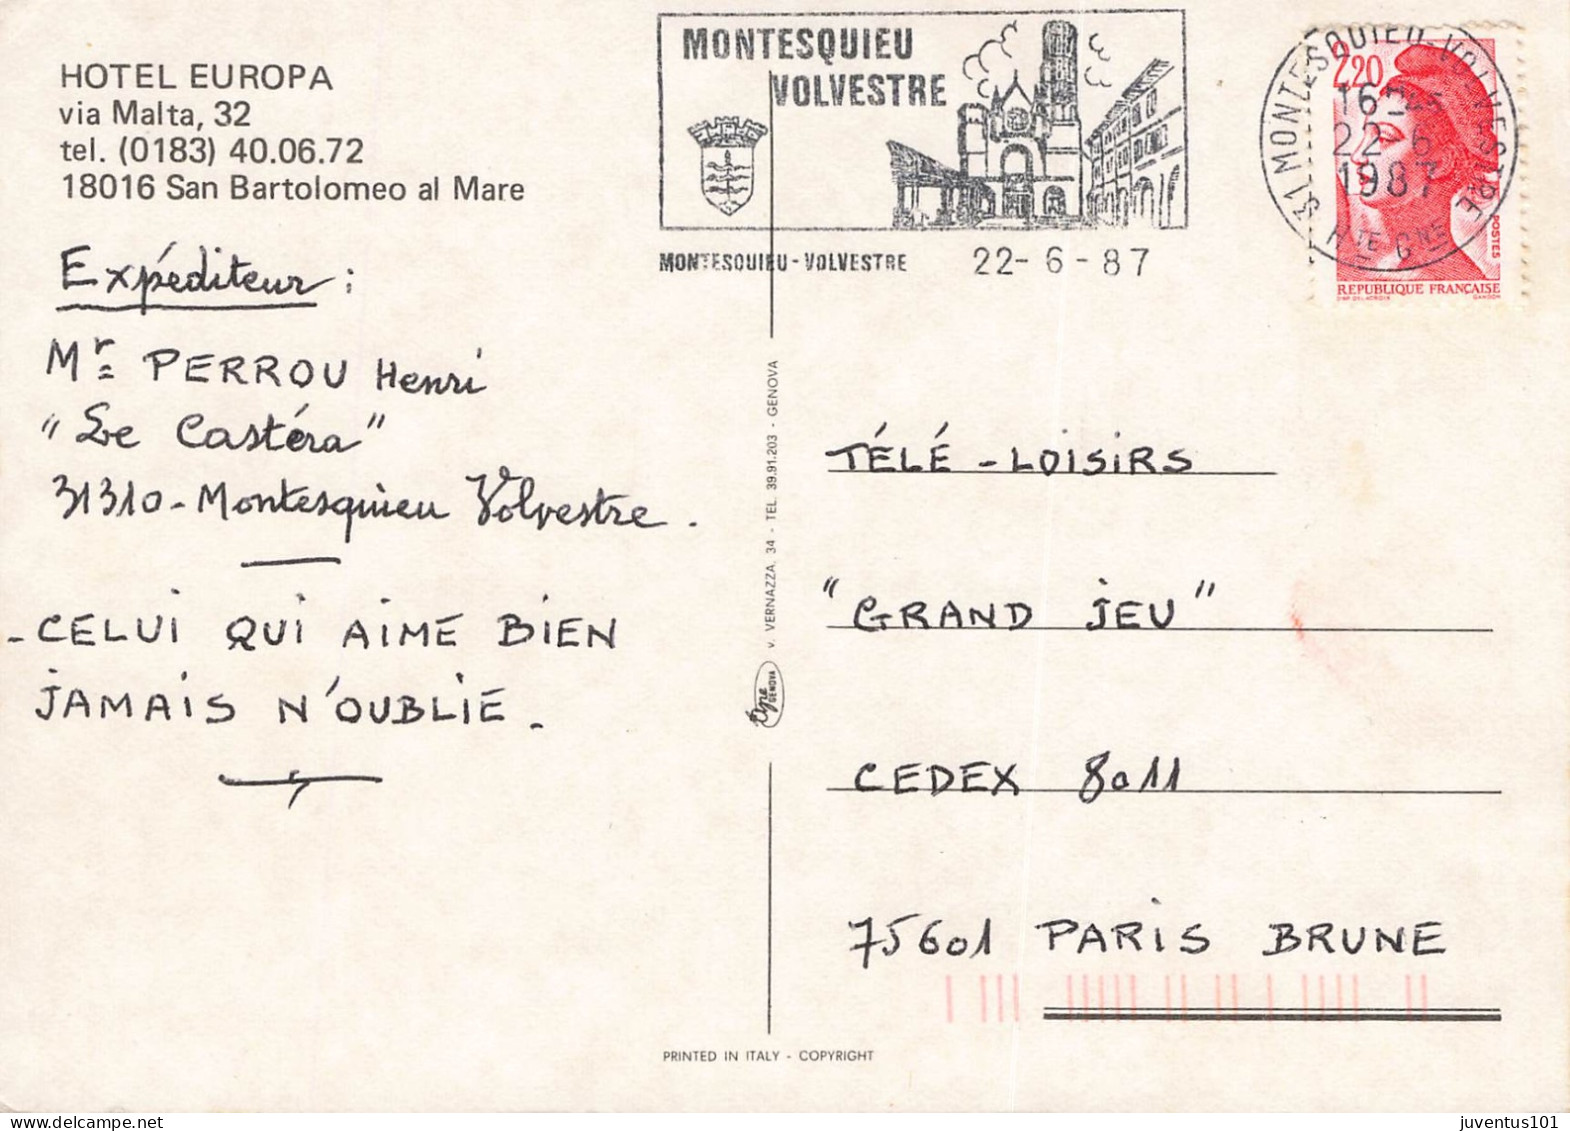 HOTEL EUROPA
via Malta, 32
tel. (0183) 40.06.72
18016 San Bartolomeo al Mare
MONTESQUIEU
VOLVESTRE
MONTESQUIEU - VOLVESTRE
22-6-87
31 MONTESQUIEU-VOLVESTRE
16H
22-6
1987
HTE GNE
2,20
POSTES
REPUBLIQUE FRANÇAISE
GANDON
Expéditeur :
Mr PERROU Henri
"Le Castéra"
31310 - Montesquieu Volvestre.
- CELUI QUI AIME BIEN
JAMAIS N'OUBLIE.
v. VERNAZZA, 34 - TEL. 39.91.203 - GENOVA
GENOVA
PRINTED IN ITALY - COPYRIGHT
TÉLÉ - LOISIRS
"GRAND JEU"
CEDEX 8011
75601 PARIS BRUNE
juventus101